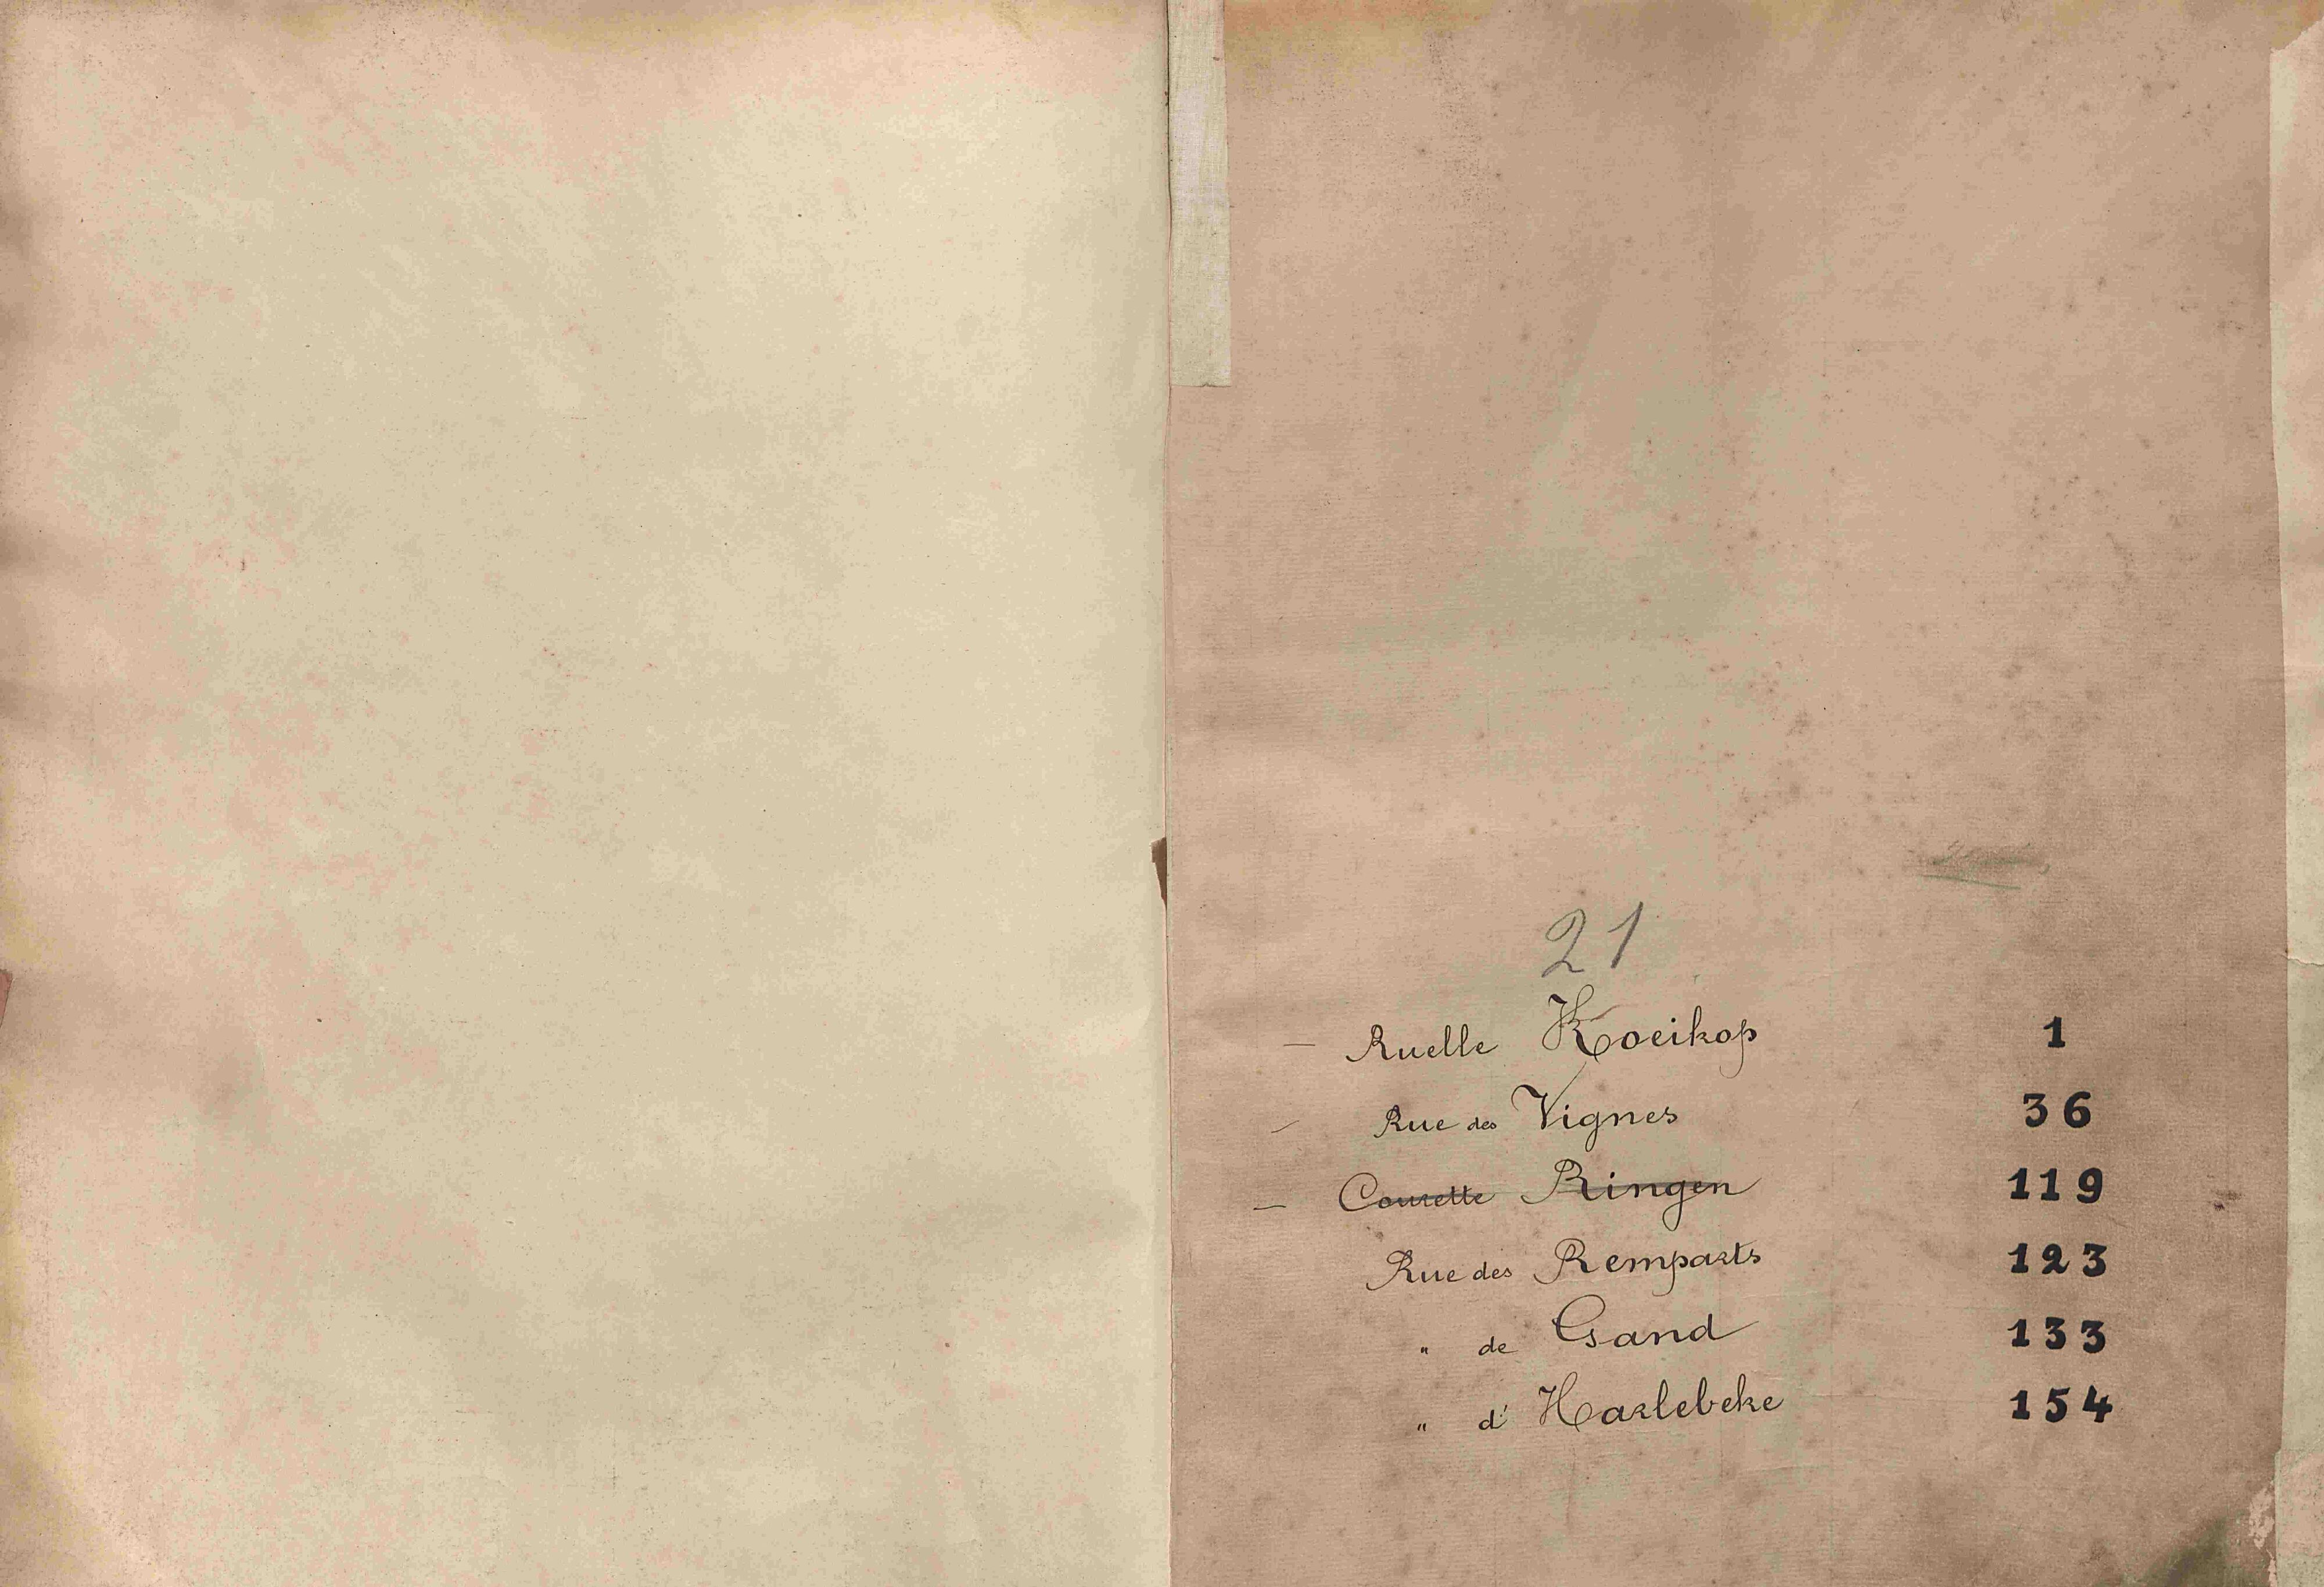 21
— Ruelle Koeikop 1
— Rue des Vignes 36
— Courette Ringen 119
Rue des Remparts 123
" de Gand 133
" d' Harlebeke 154